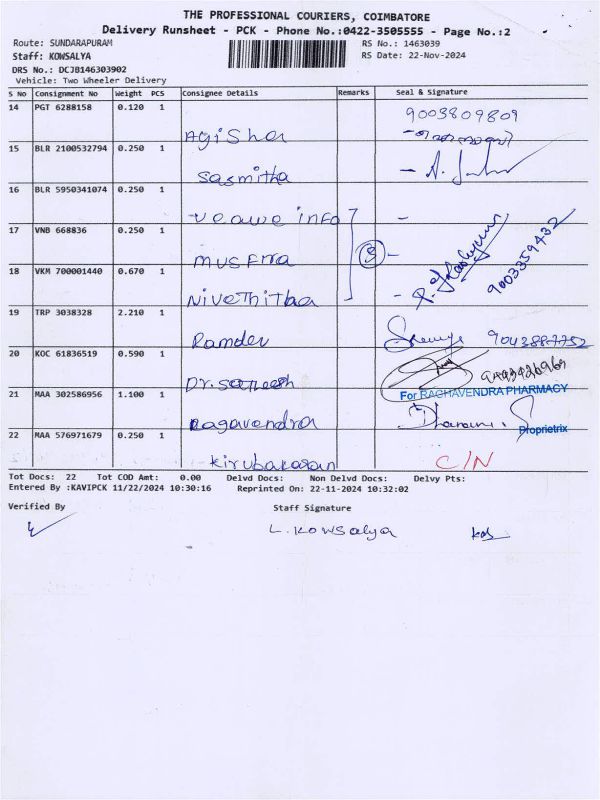 THE PROFESSIONAL COURIERS, COIMBATORE
Delivery Runsheet - PCK - Phone No.:0422-3505555 - Page No.:2
Route: SUNDARAPURAM RS No.: 1463039
Staff: KOWSALYA RS Date: 22-Nov-2024
DRS No.: DCJB146303902
Vehicle: Two Wheeler Delivery
S No Consignment No Weight PCS Consignee Details Remarks Seal & Signature
14 PGT 6288158 0.120 1 Agisha 9003809809
15 BLR 2100532794 0.250 1 Sasmitha
16 BLR 5950341074 0.250 1 info
17 VNB 668836 0.250 1 3
18 VKM 700001440 0.670 1 Nivethitha 9003359432
19 TRP 3038328 2.210 1 Ramdev 9043887752
20 KOC 61836519 0.590 1 Dr. Sateesh
For RAGHAVENDRA PHARMACY
21 MAA 302586956 1.100 1 Ragavendra
Proprietrix
22 MAA 576971679 0.250 1 Kirubakaran C/N
Tot Docs: 22 Tot COD Amt: 0.00 Delvd Docs: Non Delvd Docs: Delvy Pts:
Entered By :KAVIPCK 11/22/2024 10:30:16 Reprinted On: 22-11-2024 10:32:02
Verified By Staff Signature
L. Kowsalya